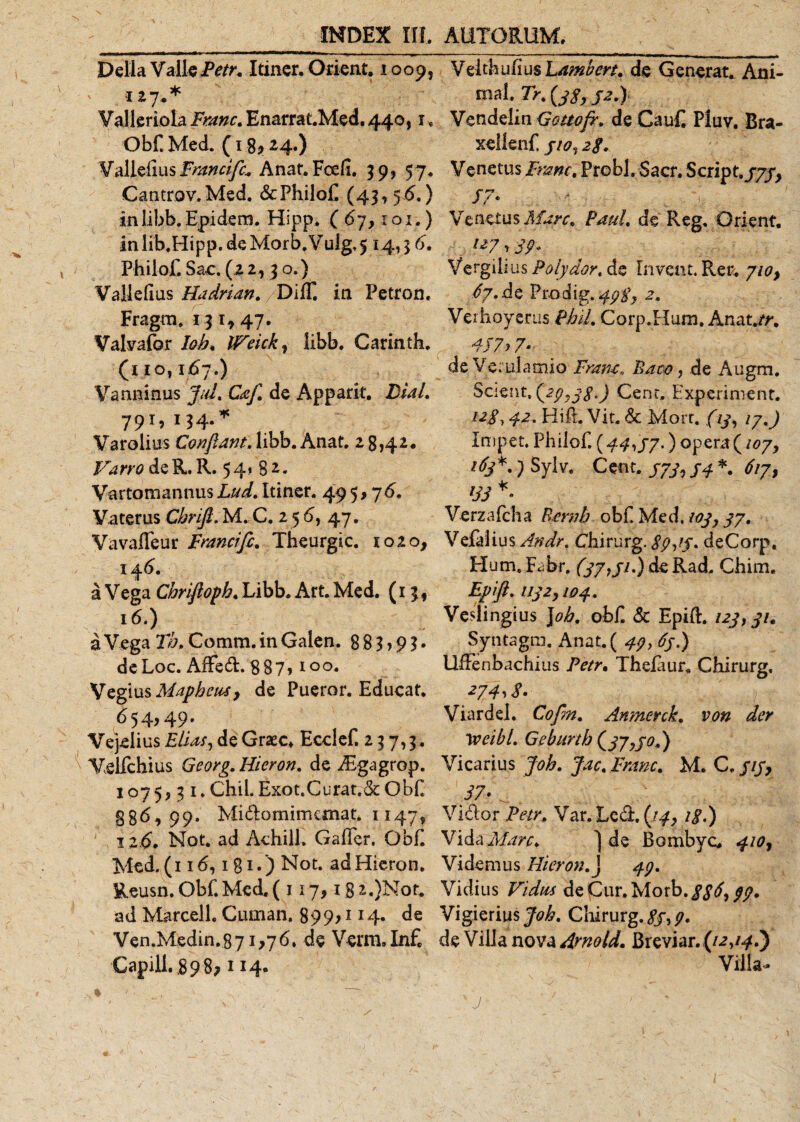 INDEX III. AUTORUM.
Della Valle Petr. Itiner. Orient. 1009,
127.*
Valleriola Franc. Enarrat.Med. 440, 1.
Obſ. Med. (18, 24.)
Valleſius Franciſc. Anat. Foeſi. 39, 57.
Cantrov. Med. & Philoſ. (43, 56.)
in libb. Epidem. Hipp. (67, 101.)
in lib.Hipp. de Morb.Vulg. 514, 36.
Philoſ. Sac. (22, 30.)
Valleſius Hadrian. Diſſ. in Petron.
Fragm. 131, 47.
Valvaſor Ioh. Weick, libb. Carinth.
(110, 167.)
Vanninus Jul. Cæſ. de Apparit. Dial.
791, 134.*
Varolius Conſtant. libb. Anat. 28, 42.
Varro de R. R. 54, 82.
Vartomannus Lud. Itiner. 495, 76.
Vaterus Chriſt. M. C. 256, 47.
Vavaſſeur Franciſc. Theurgic. 1020,
146.
à Vega Chriſtoph. Libb. Art. Med. (13,
16.)
à Vega Th. Comm. in Galen. 883, 93.
de Loc. Affect. 887, 100.
Vegius Mapheus, de Pueror. Educat.
654, 49.
Vejelius Elias, de Græc. Eccleſ. 237, 3.
Velſchius Georg. Hieron. de Ægagrop.
1075, 31. Chil. Exot. Curat. & Obſ.
886, 99. Mictomimemat. 1147,
126. Not. ad Achill. Gaſſer. Obſ.
Med. (116, 181.) Not. ad Hieron.
Reusn. Obſ. Med. (117, 182.) Not.
ad Marcell. Cuman. 899, 114. de
Ven.Medin. 871, 76. de Verm. Inf.
Capill. 898, 114.
Velthuſius Lambert. de Generat. Ani-
mal. Tr. (38, 52.)
Vendelin Gottofr. de Cauſ. Pluv. Bra-
xellenſ. 510, 28.
Venetus Franc. Probl. Sacr. Script. 575,
57.
Venetus Marc. Paul. de Reg. Orient.
127, 39.
Vergilius Polydor. de Invent. Rer. 710,
67. de Prodig. 498, 2.
Verhoyerus Phil. Corp.Hum. Anat. tr.
457, 7.
de Verulamio Franc. Baco, de Augm.
Scient. (29, 38.) Cent. Experiment.
128, 42. Hiſt. Vit. & Mort. (13, 17.)
Impet. Philoſ. (44, 57.) opera (107,
163*.) Sylv. Cent. 573, 54*. 617,
133*.
Verzaſcha Bernh. obſ. Med. 103, 37.
Veſalius Andr. Chirurg. 89, 15. de Corp.
Hum. Fabr. (37, 51.) de Rad. Chim.
Epiſt. 1132, 104.
Veslingius Joh. obſ. & Epiſt. 123, 31.
Syntagm. Anat. (49, 65.)
Uffenbachius Petr. Theſaur. Chirurg.
274, 8.
Viardel. Coſm. Anmerck. von der
weibl. Geburth (37, 50.)
Vicarius Joh. Jac. Franc. M. C. 515,
37.
Victor Petr. Var. Lect. (14, 18.)
Vida Marc. } de Bombyc. 410,
Videmus Hieron. } 49.
Vidius Vidus de Cur. Morb. 886, 99.
Vigierius Joh. Chirurg. 85, 9.
de Villa nova Arnold. Breviar. (12, 14.)
Villa-